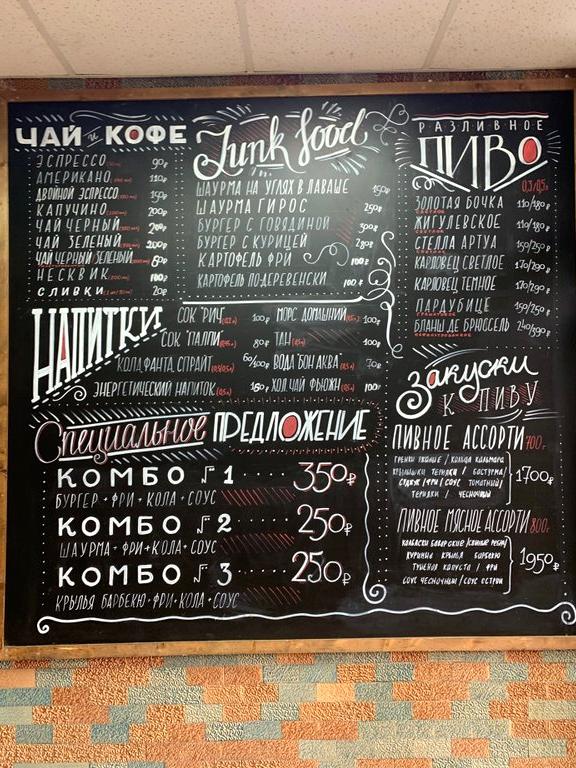 ЧАЙ и КОФЕ
ЭСПРЕССО 90₽
АМЕРИКАНО 110₽
ДВОЙНОЙ ЭСПРЕССО 150₽
КАПУЧИНО 200₽
ЧАЙ ЧЕРНЫЙ 200₽
ЧАЙ ЗЕЛЕНЫЙ 200₽
ЧАЙ ЧЕРНЫЙ ЗЕЛЕНЫЙ
НЕСКВИК 100₽
СЛИВКИ 20₽
Junk food
ШАУРМА НА УГЛЯХ В ЛАВАШЕ 150₽
ШАУРМА ГИРОС 250₽
БУРГЕР С ГОВЯДИНОЙ 300₽
БУРГЕР С КУРИЦЕЙ 280₽
КАРТОФЕЛЬ ФРИ 100₽
КАРТОФЕЛЬ ПО-ДЕРЕВЕНСКИ 100₽
РАЗЛИВНОЕ
ПИВО
0,3/0,5л
ЗОЛОТАЯ БОЧКА 110/180₽
СВЕТЛОЕ
ЖИГУЛЕВСКОЕ 110/180₽
СВЕТЛОЕ
СТЕЛЛА АРТУА 150/250₽
СВЕТЛОЕ
КАРЛОВЕЦ СВЕТЛОЕ 170/290₽
КАРЛОВЕЦ ТЕМНОЕ 170/290₽
ПАРДУБИЦЕ 150/250₽
ГРАНАТОВОЕ
БЛАНШ ДЕ БРЮССЕЛЬ 240/390₽
НЕФИЛЬТРОВАННОЕ
НАПИТКИ
СОК "РИЧ" 100₽
СОК "ПАЛПИ" 80₽
КОЛА, ФАНТА, СПРАЙТ 60/100₽
ЭНЕРГЕТИЧЕСКИЙ НАПИТОК 150₽
МОРС ДОМАШНИЙ 100₽
ТАН 100₽
ВОДА "БОН АКВА" 70₽
ХОЛ.ЧАЙ ФЬЮЖН 100₽
Специальное ПРЕДЛОЖЕНИЕ
КОМБО № 1 350₽
БУРГЕР + ФРИ + КОЛА + СОУС
КОМБО № 2 250₽
ШАУРМА + ФРИ + КОЛА + СОУС
КОМБО № 3 250₽
КРЫЛЬЯ БАРБЕКЮ + ФРИ + КОЛА + СОУС
Закуски
К ПИВУ
ПИВНОЕ АССОРТИ 700г.
ГРЕНКИ РЖАНЫЕ / КОЛЬЦА КАЛЬМАРА
КРЫЛЫШКИ ТЕРИЯКИ / БАСТУРМА /
СУДЖУК / ФРИ / СОУС ТОМАТНЫЙ /
ТЕРИЯКИ / ЧЕСНОЧНЫЙ
1700₽
ПИВНОЕ МЯСНОЕ АССОРТИ 800г.
КОЛБАСКИ БАВАРСКИЕ /
КУРИНЫЕ КРЫЛЬЯ БАРБЕКЮ
ТУШЕНАЯ КАПУСТА / ФРИ
СОУС ЧЕСНОЧНЫЙ / СОУС ОСТРЫЙ
1950₽